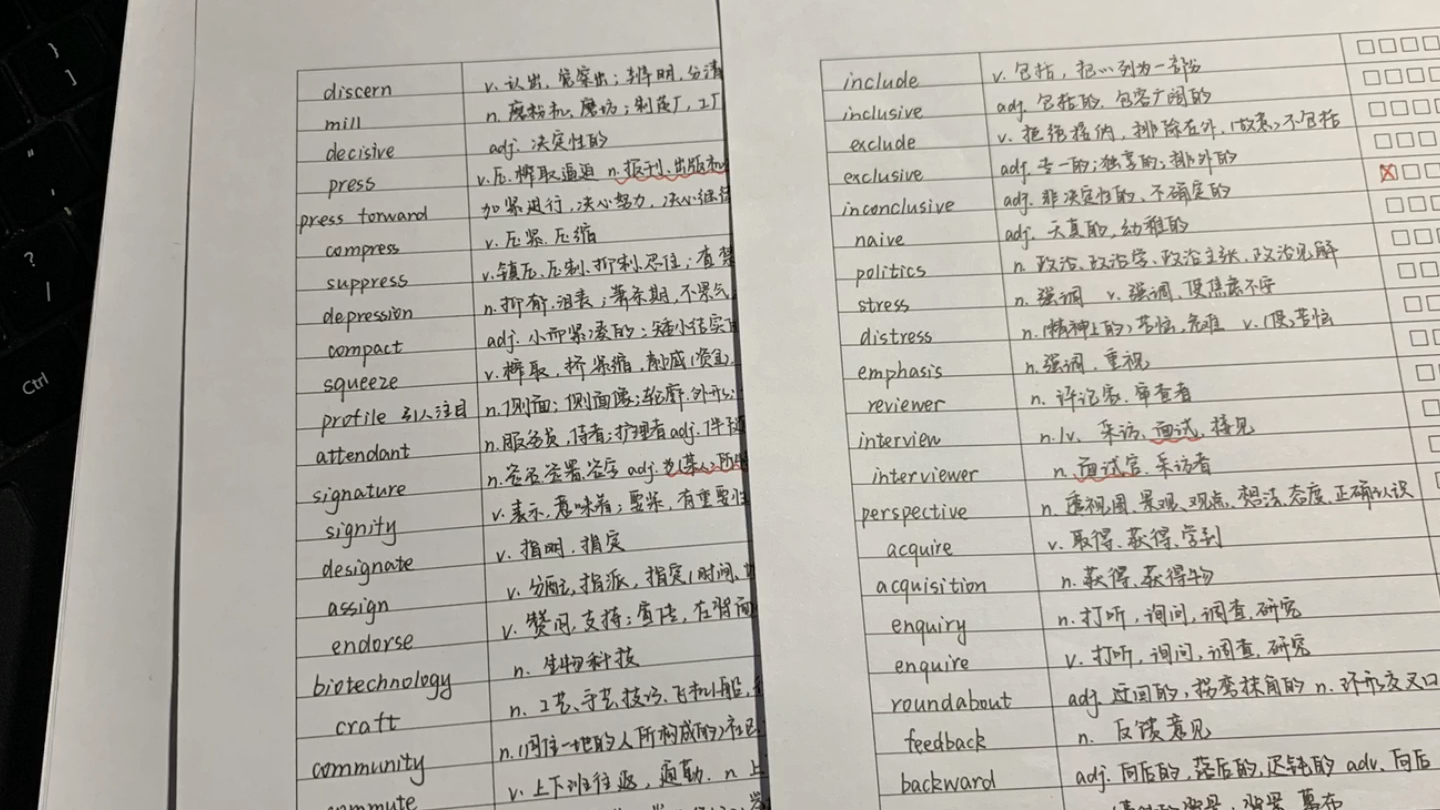 discern v. 认出, 觉察出; 辨明, 分清
mill n. 磨粉机, 磨坊; 制造厂, 工厂
decisive adj. 决定性的
press v. 压. 榨取. 逼迫 n. 报刊. 出版机
press forward 加紧进行, 决心努力, 决心继续
compress v. 压紧. 压缩
suppress v. 镇压. 压制. 抑制. 忍住; 查禁
depression n. 抑郁. 沮丧; 萧条期, 不景气
compact adj. 小而紧凑的; 矮小结实的
squeeze v. 榨取, 挤 紧缩, 削减(资金)
profile 引人注目 n. 侧面; 侧面像; 轮廓. 外形
attendant n. 服务员, 侍者; 护理者 adj. 伴随
signature n. 签名. 签署. 签字 adj.
signify v. 表示, 意味着; 要紧, 有重要性
designate v. 指明. 指定
assign v. 分配, 指派, 指定(时间.
endorse v. 赞同, 支持; 宣传, 在背面
biotechnology n. 生物科技
craft n. 工艺、手艺. 技巧. 飞机. 船
community n. (同住一地的人所构成的)社区
commute v. 上下班往返, 通勤. n 上
Ctrl
include v. 包括, 把⋯列为一部分
inclusive adj. 包括的. 包容广阔的
exclude v. 拒绝接纳, 排除在外, (故意)不包括
exclusive adj. 专一的; 独享的; 排外的
inconclusive adj. 非决定性的、不确定的
naive adj. 天真的, 幼稚的
politics n. 政治、政治学、政治主张、政治见解
stress n. 强调 v. 强调、使焦虑不安
distress n. (精神上的)苦恼, 危难 v. (使)苦恼
emphasis n. 强调, 重视
reviewer n. 评论家. 审查者
interview n./v. 采访. 面试. 接见
interviewer n. 面试官. 采访者
perspective n. 透视图、景观、观点、想法、态度、正确认识
acquire v. 取得、获得、学到
acquisition n. 获得、获得物
enquiry n. 打听, 询问, 调查. 研究
enquire v. 打听, 询问, 调查. 研究
roundabout adj. 迂回的, 拐弯抹角的 n. 环形交叉口
feedback n. 反馈意见
backward adj. 向后的, 落后的, 迟钝的 adv. 向后